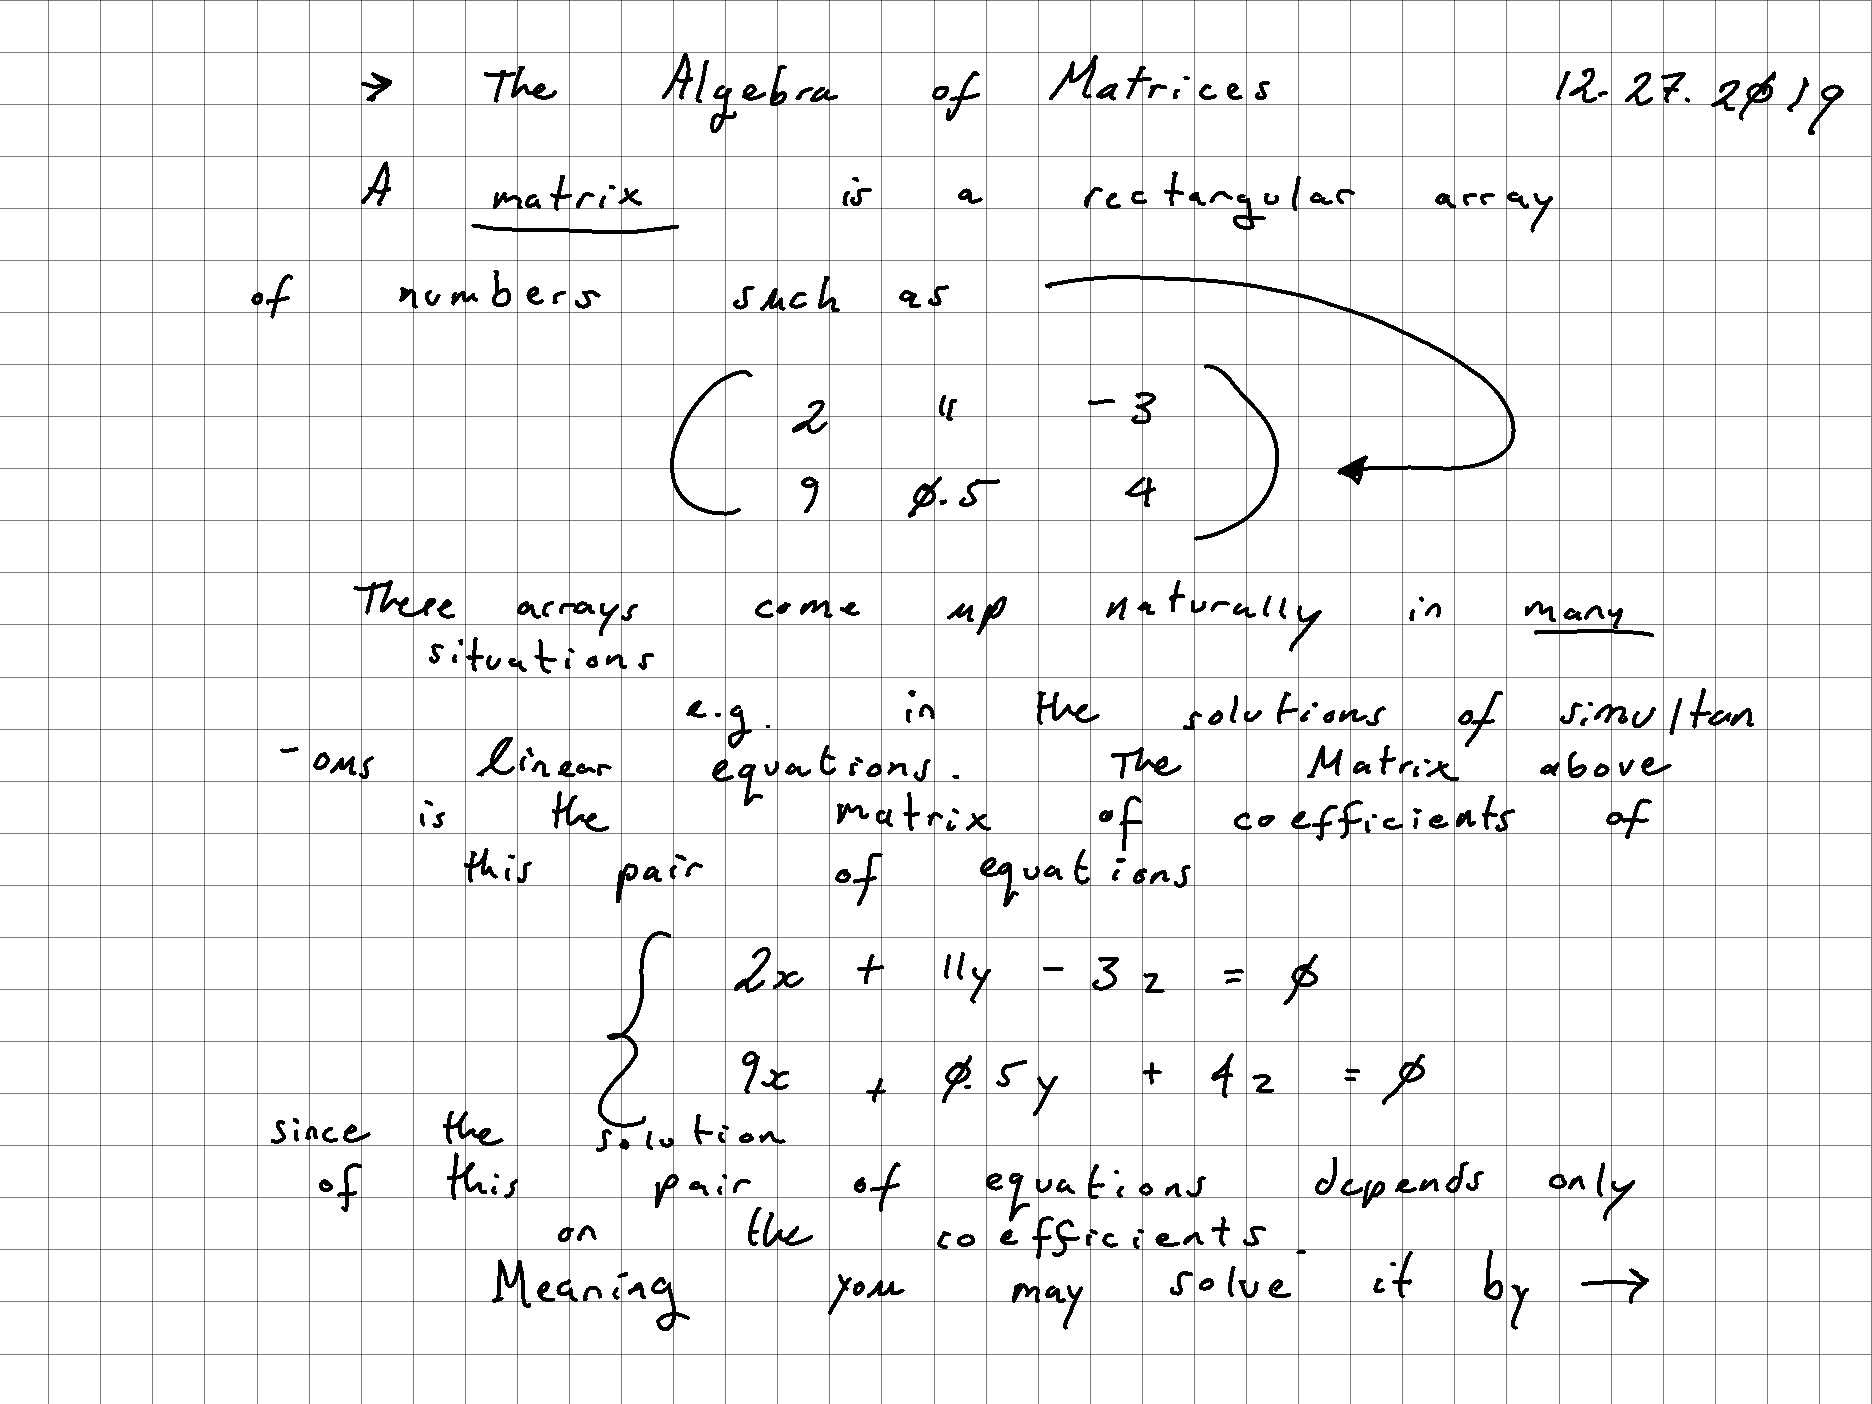 → The Algebra of Matrices 12.27.2019
A matrix is a rectangular array
of numbers such as
2 11 -3
9 0.5 4
These arrays come up naturally in many
situations
e.g. in the solutions of simultan
-ous linear equations. The Matrix above
is the matrix of coefficients of
this pair of equations
2x + 11y - 3z = 0
9x + 0.5y + 4z = 0
since the solution
of this pair of equations depends only
on the coefficients.
Meaning you may solve it by →